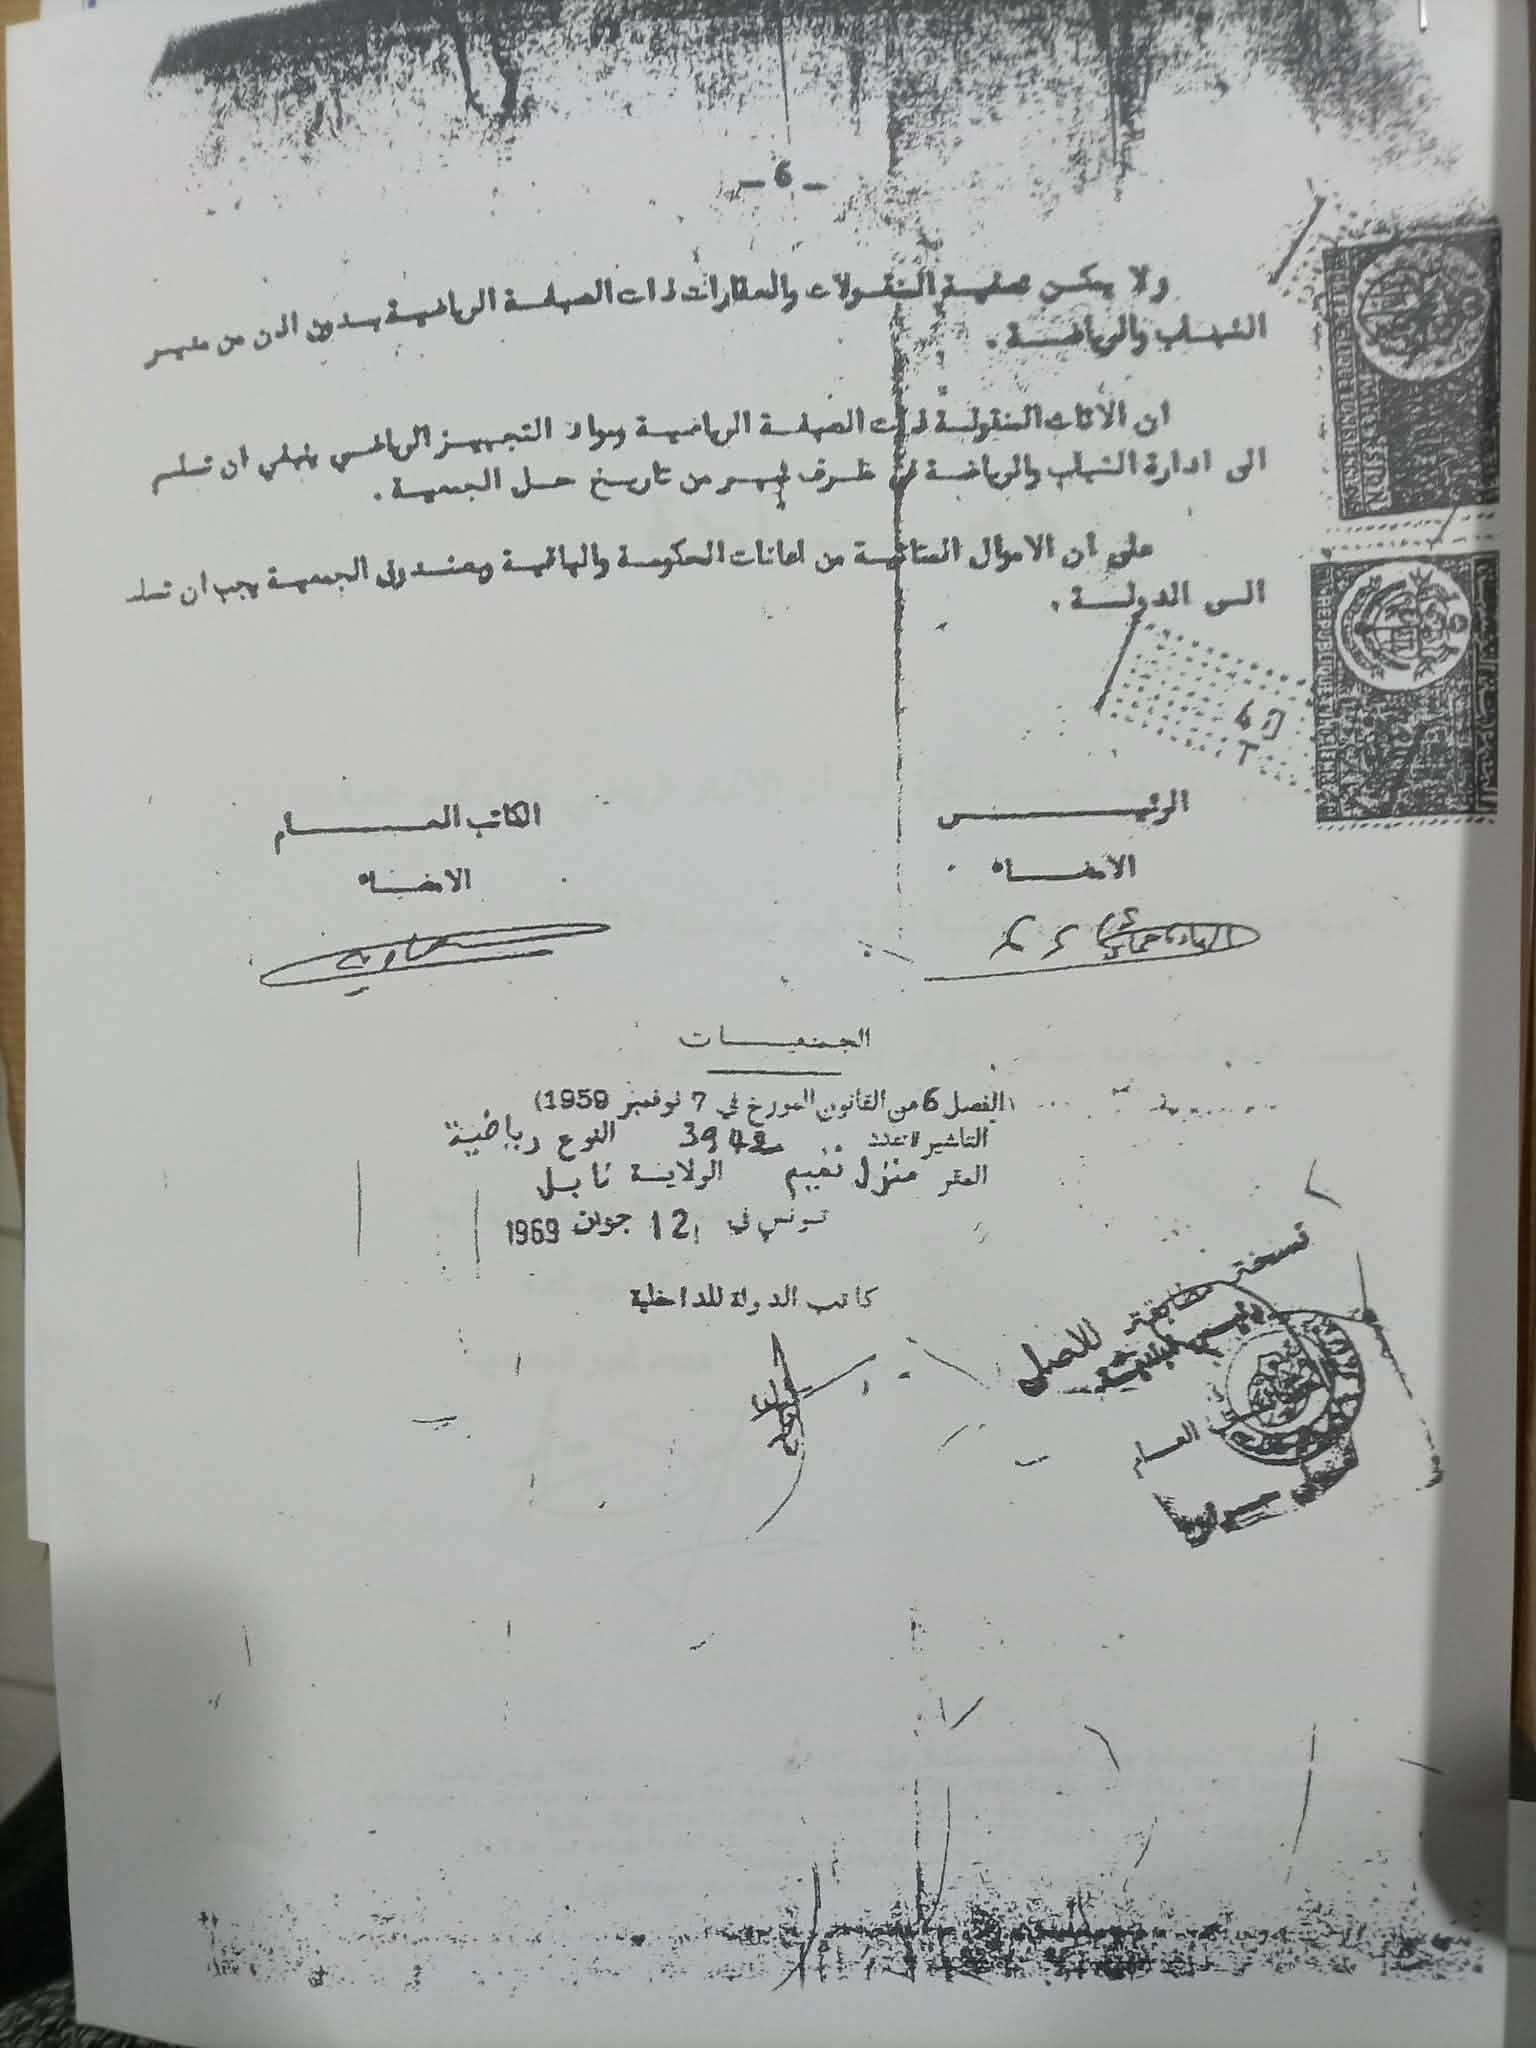 - 6 -
ولا يمكن تصفية المنقولات والعقارات ذات الصبغة الرياضية بدون اذن من مدير
الشباب والرياضة .
ان الاثاث المنقولة ذات الصبغة الرياضية ومواد التجهيز الرياضي ينبغي ان تسلم
الى ادارة الشباب والرياضة في ظرف شهر من تاريخ حل الجمعية .
على ان الاموال المتاتية من اعانات الحكومة والباقية بصندوق الجمعية يجب ان تسلم
الى الدولة .
الرئيس
الكاتب العام
الامضاء
الامضاء
الجمعيات
(الفصل 6 من القانون المورخ في 7 نوفمبر 1959)
التاشيرة عدد 3942 النوع رياضية
المقر منزل تميم الولاية نابل
تونس في 12 جوان 1969
كاتب الدولة للداخلية
نسخة مطابقة للاصل
رئيس البلدية
العام